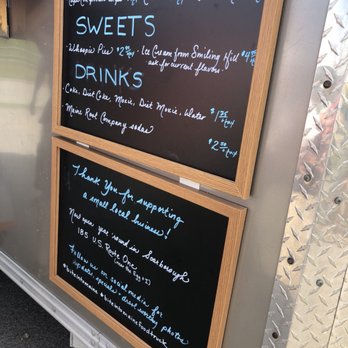 SWEETS
Whoopie Pies $2.00 + tax • Ice Cream from Smiling Hill $4.00
ask for current flavors.
DRINKS
Coke, Diet Coke, Moxie, Diet Moxie, Water $1.25 + tax
Maine Root Company sodas $2.50 + tax
Thank You for supporting
a small local business!
Now open year round in Scarborough
185 U.S. Route One
Follow us on social media for
updates, specials + drool worthy photos